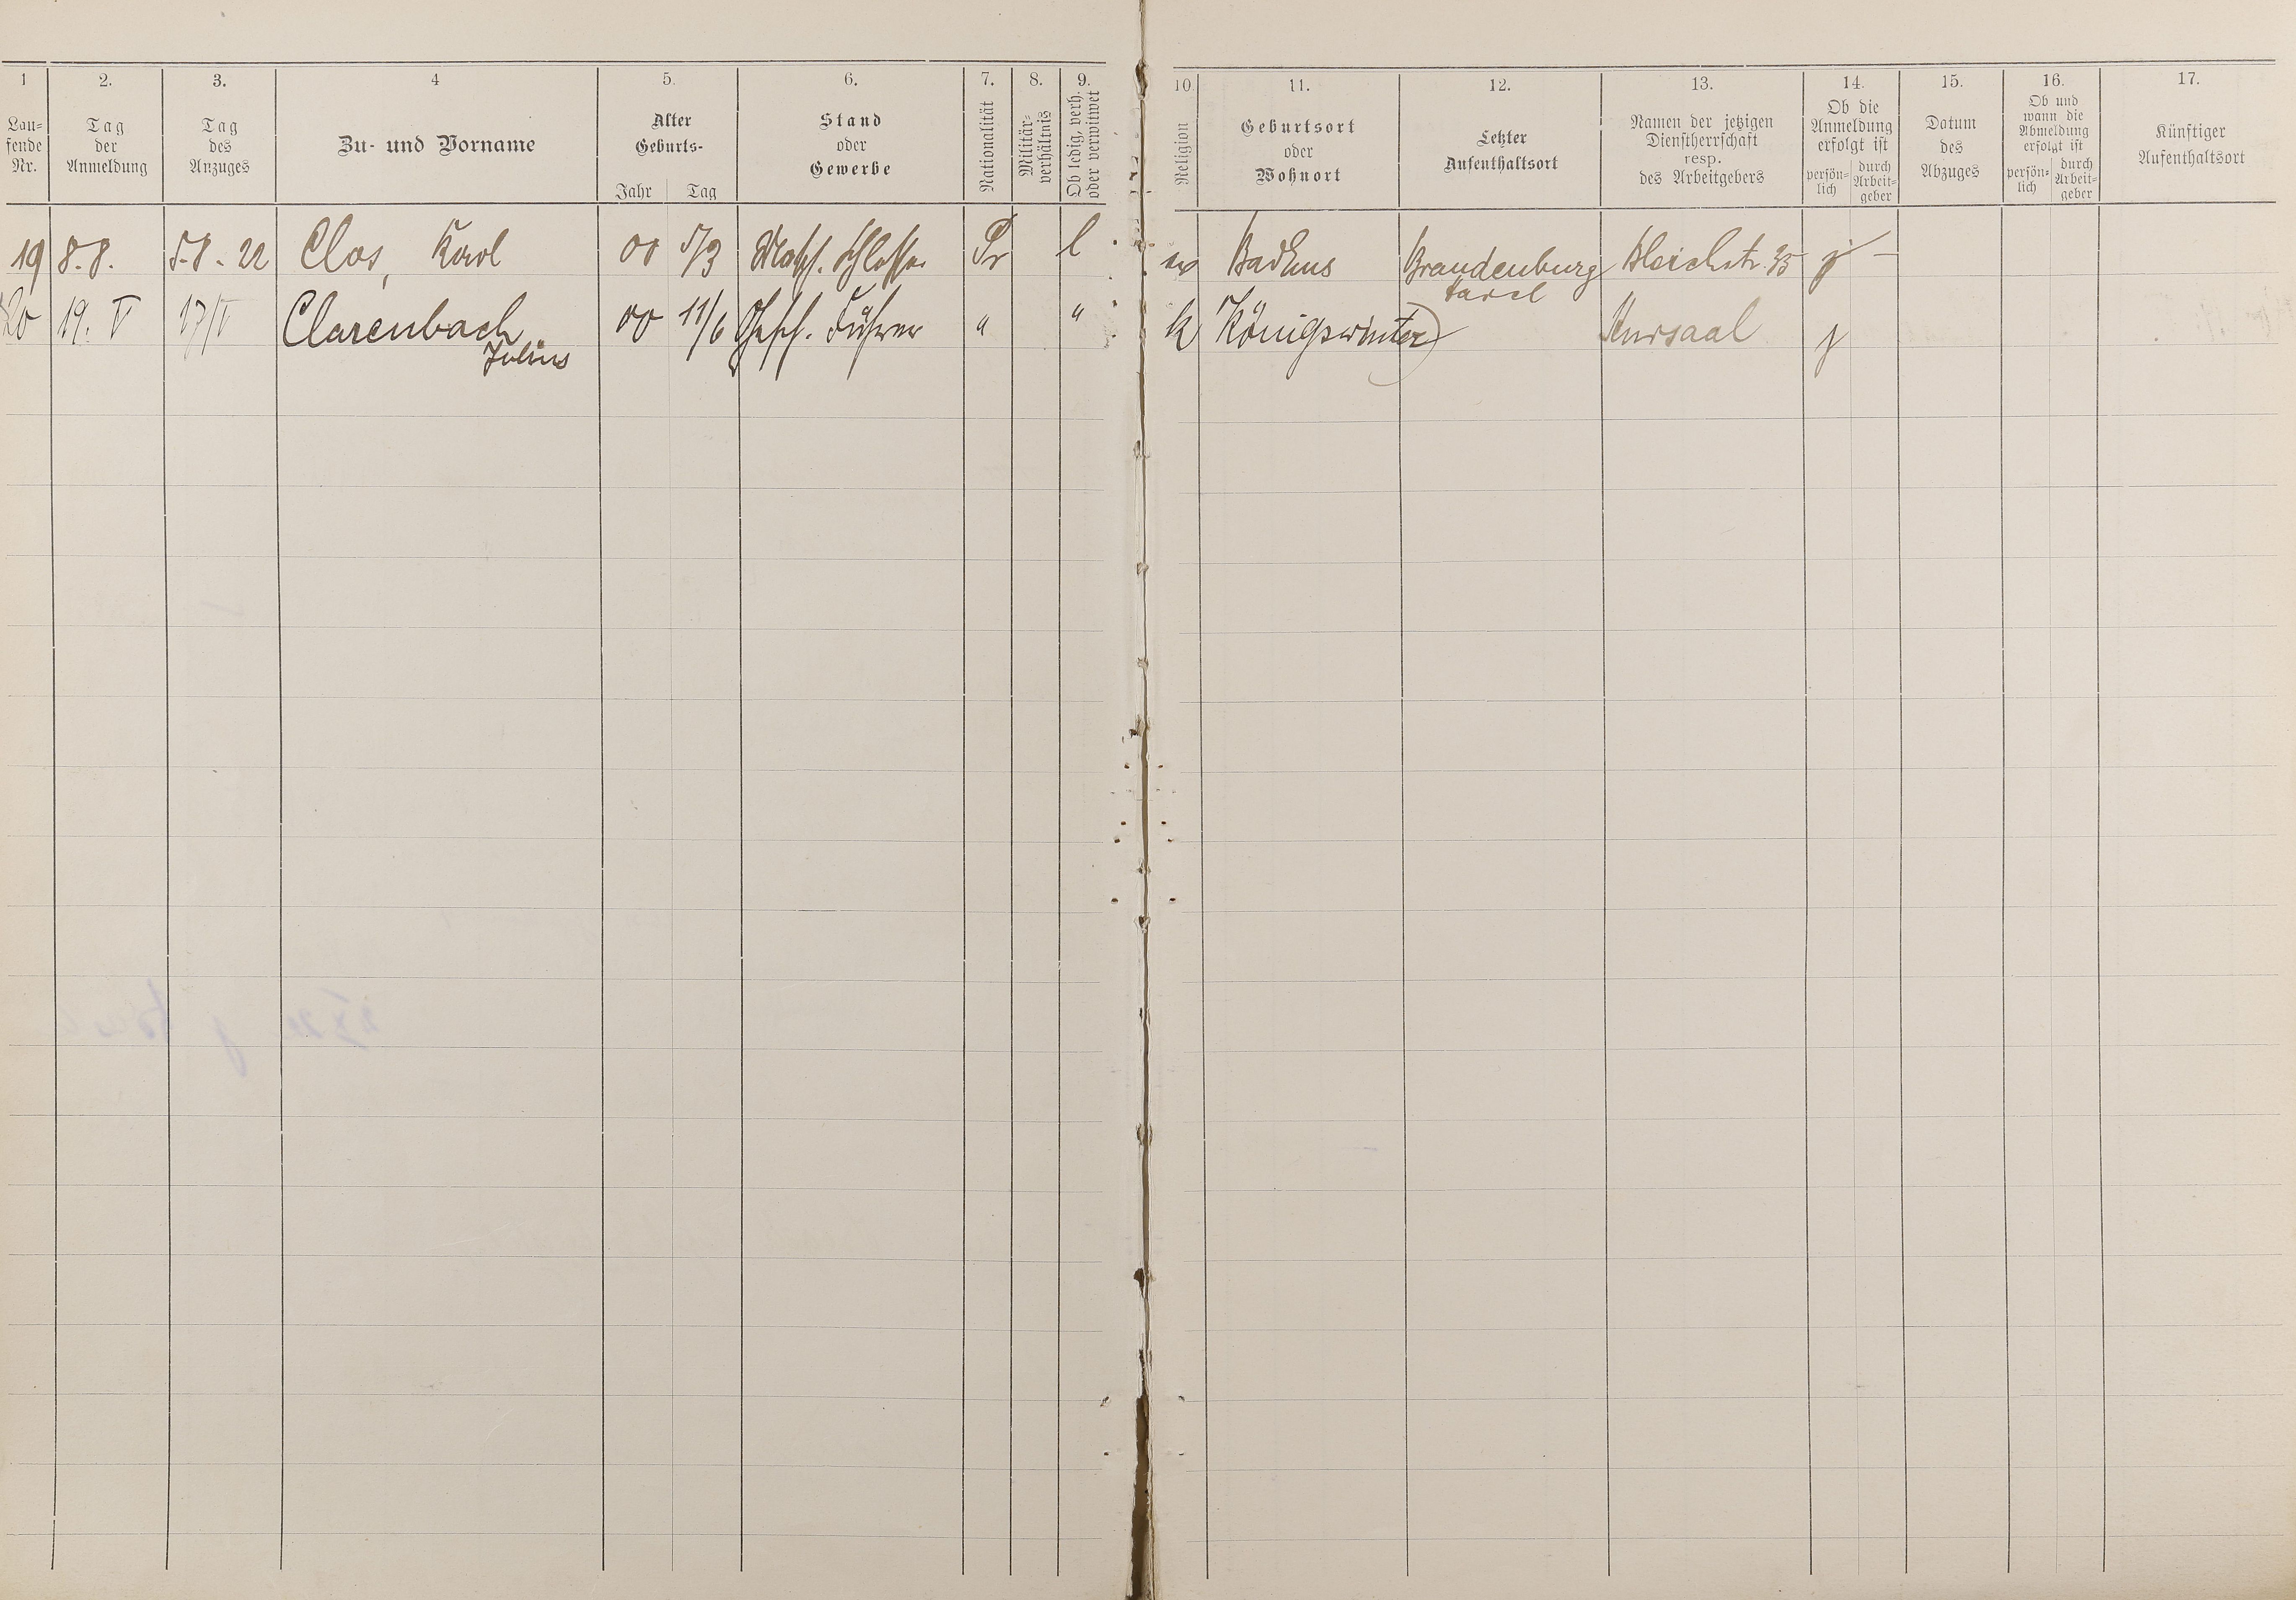 1 2. 3. 4 5. 6. 7. 8. 9. 10 11. 12. 13. 14. 15. 16. 17.
Lau-
fende
Nr.
Tag
der
Anmeldung
Tag
des
Anzuges
Zu- und Vorname
Alter
Geburts-
Jahr Tag
Stand
oder
Gewerbe
Nationalität
Militär-
verhältnis
Ob ledig, verh.
oder verwitwet
Religion
Geburtsort
oder
Wohnort
Letzter
Aufenthaltsort
Namen der jetzigen
Dienstherrschaft
resp.
des Arbeitgebers
Ob die
Anmeldung
erfolgt ist
persön-
lich
durch
Arbeit-
geber
Datum
des
Abzuges
Ob und
wann die
Abmeldung
erfolgt ist
persön-
lich
durch
Arbeit-
geber
Künftiger
Aufenthaltsort
19 8.8. 5.8.22 Clos, Karl 00 5/3 Masch. Schlosser Pr l ev Bad Ems Brandenburg Bleichstr. 35 j –
Havel
20 19. V 17/V Clarenbach 00 11/6 Gesch. Führer " " k Königswinter Kursaal j
Julius